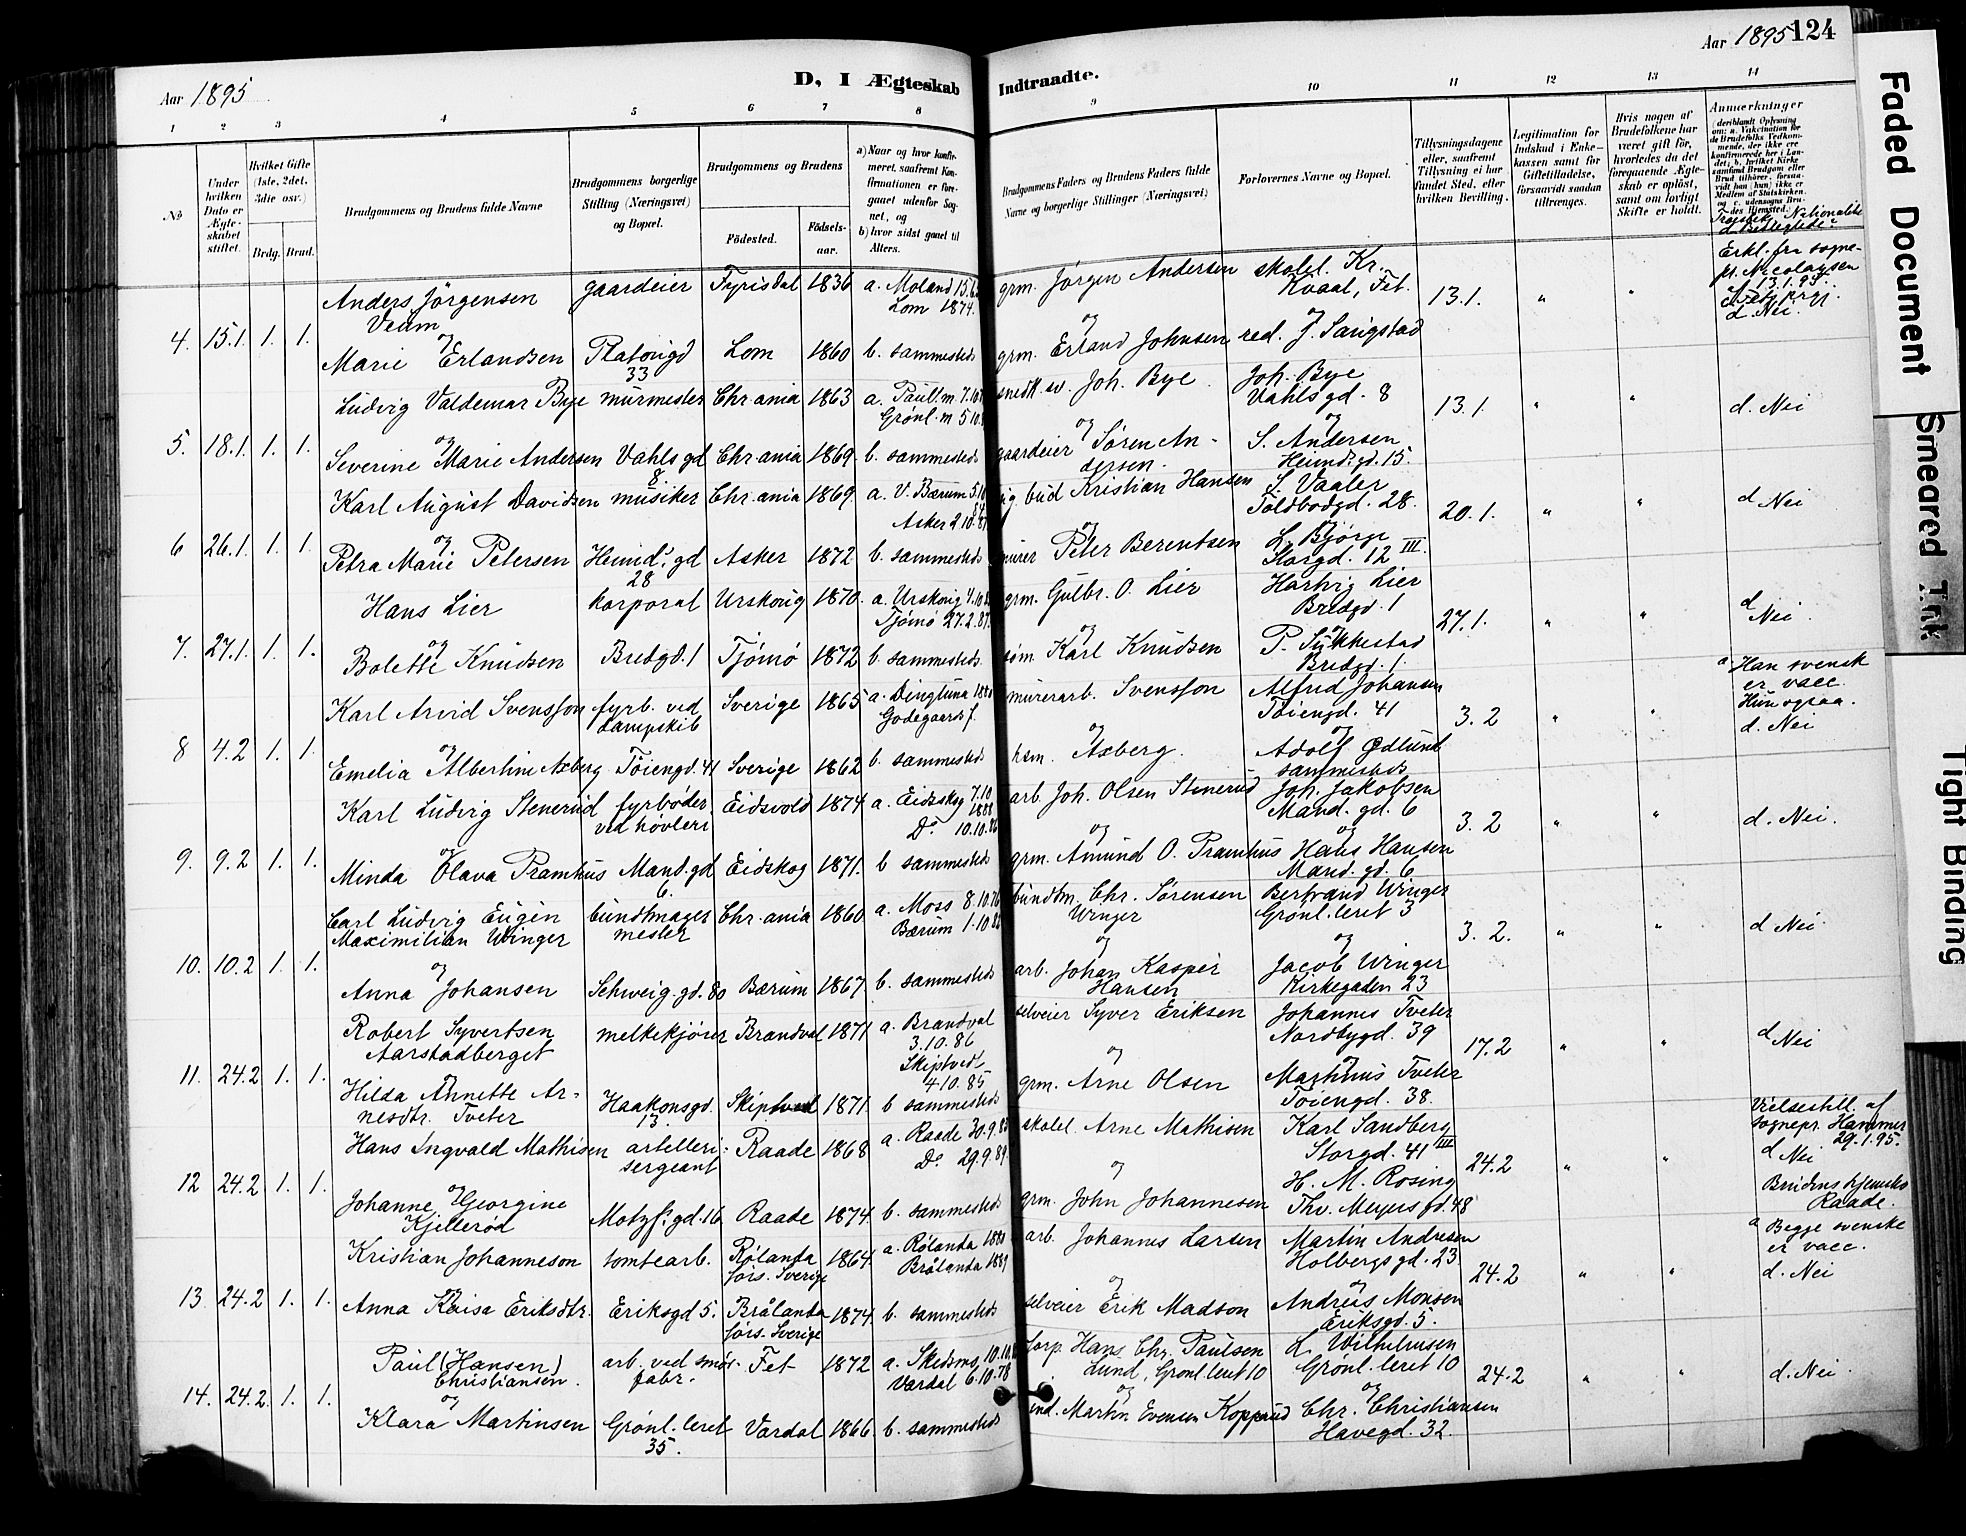 Aar 1895
D, I Ægteskab
1 2 3 4 5 6 7 8
№
Under hvilken Dato er Ægteskabet stiftet.
Hvilket Gifte (1ste, 2det, 3die osv.)
Brdg. Brud.
Brudgommens og Brudens fulde Navne
Brudgommens borgerlige Stilling (Næringsvei) og Bopæl.
Brudgommens og Brudens
Födested.
Födsels-aar.
a) Naar og hvor konfirmeret, saafremt Konfirmationen er foregaaet udenfor Sognet, og
b) hvor sidst gaaet til Alters.
4. 15.1. 1. 1.
Anders Jörgensen Veum
gaardeier Tyrisdal 1836 a. Moland
Lom 1874.
og
Marie Erlandsen Platöugd 33 Lom 1860 b. sammesteds
5. 18.1. 1. 1.
Ludvig Valdemar Bye murmester Chr.ania 1863 a. Paull.m
Grönl.m
og
Severine Marie Andersen Vahlsgd 8 Chr.ania 1869. b. sammesteds
6 26.1. 1. 1.
Karl August Davidsen musiker Chr.ania 1869. a. V. Bærum
Asker 2.10.87
og
Petra Marie Petersen Heimd.gd 28 Asker 1872 b. sammesteds
7. 27.1. 1. 1.
Hans Lier korporal Urskoug 1870. a. Urskoug
Tjömö 27.2.87.
og
Bolette Knudsen Bredgd. 1 Tjömö 1872 b. sammesteds
8 4.2 1. 1.
Karl Arvid Svensson fyrb. ved dampskib Sverige 1865 a. Dingtuna
Godegaards f.
og
Emelia Albertine Axberg Töiengd. 41 Sverige 1862 b. sammesteds
9. 9.2 1. 1.
Karl Ludvig Stenerud fyrböder ved hövleri Eidsvold 1874 a. Eidskog 7.10 1888
Do. 10.10.86
og
Minda Olava Pramhus Mand.gd 6. Eidskog 1871. b sammesteds
10. 10.2 1. 1.
Carl Ludvig Eugen Maximilian Winger bundtmager mester Chr.ania 1860 a. Moss
Bærum
og
Anna Johansen Schweig.gd. 80 Bærum 1867 b. sammesteds
11. 24.2 1. 1.
Robert Syvertsen Aarstadberget melkekjörer Brandval 1871 a. Brandval 3.10.86
Skiptvedt 4.10.85
og
Hilda Annette Arnesdtr. Tveter Haakonsgd. 13. Skiptved 1871 b sammesteds
12 24.2 1. 1.
Hans Ingvald Mathisen artilleri: sergeant Raade 1868 a. Raade
Do. 29.9.89.
og
Johanne Georgine Kjelleröd Motzf.gd. 16 Raade 1874. b. sammesteds
13. 24.2 1. 1.
Kristian Johanneson tomtearb. Rölanda förs. Sverige 1864. a. Rölanda
Brålanda
og
Anna Kaisa Eriksdtr. Eriksgd 5. Brålanda förs. Sverige 1874. b. sammesteds
14. 24.2. 1. 1.
Paul (Hansen) Christiansen. arb. ved smörfabr. Fet 1872 a. Skedsmo
Vardal 6.10.78
og
Klara Martinsen Grönl.leret 35. Vardal 1866. b. sammesteds
Indtraadte.
Aar 1895 124
9 10 11 12 13 14
Brudgommens Faders og Brudens Faders fulde Navne og borgerlige Stillinger (Næringsvei)
Forlovernes Navne og Bopæl.
Tillysningsdagene eller, saafremt Tillysning ei har fundet Sted, efter hvilken Bevilling.
Legitimation for Indskud i Enkekassen samt for Giftetilladelse, forsaavidt saadan tiltrænges.
Hvis nogen af Brudefolkene har været gift før, hvorledes da det foregaaende Ægteskab er opløst, samt om lovligt Skifte er holdt.
Anmærkninger
grm. Jörgen Andersen skolel. Kr. Kvaal, Fet. 13.1. " "
Erkl. fra sognepr. Nicolaysen 13.1.95.
d. Nei.
og
grm. Erland Johnsen red. J. Sangstad
snedk.sv. Joh. Bye. Joh. Bye Vahlsgd. 8 13.1. " " d. Nei
og og
gaardeier Sören Andersen. S. Andersen Heimd.gd. 15.
bud Kristian Hansen S. Vaaler Toldbodgd. 28. 20.1. " " d Nei
og
murer Peter Berentsen L. Björge Storgd. 12 III.
grm. Gulbr. O. Lier Hartvig Lier Bredgd. 1 27.1. " " d Nei.
og og
Karl Knudsen P. Sukkestad Bredgd. 1.
murerarb. Svensson Alfred Johansen Töiengd. 41 3.2 " "
a Han svensk er vacc. Hun ogsaa.
d. Nei
og og
hsm. Axberg. Adolf Ödlund sammesteds
arb. Joh. Olsen Stenerud Joh. Jakobsen Mand.gd. 6 3.2 " " d. Nei.
og og
grm. Amund O. Pramhus Hans Hansen Mand.gd. 6
bundtm. Chr. Sörensen Winger Bertrand Winger Grönl.leret 3 3.2. " " d Nei
og og
arb. Johan Kasper Hansen Jacob Winger Kirkegaden 23
selveier Syver Eriksen Johannes Tveter Nordbygd. 39 17.2 " " d Nei
og og
grm. Arne Olsen Martinus Tveter Töiengd. 38.
skolel. Arne Mathisen Karl Sandberg Storgd. 41 III 24.2 " "
Vielsestill. af sognepr. Hammer 29.1.95.
d Nei
Brudens hjemsted Raade.
og
grm. John Johannesen H. M. Rosing Thv. Meyers gd. 48
arb. Johannes Larsen Martin Andresen Holbergsgd. 23. 24.2 " "
a Begge svenske er vacc.
d. Nei
og og
selveier Erik Madson Andreas Monsen Eriksgd. 5.
Hans Chr. Paulsen Lund, Grönl.leret 10 L. Wilhelmsen Grönl.leret 10 24.2 " " d. Nei
og og
ind. Martin Evensen Kopprud Chr. Christiansen Havegd. 32.
Faded Document
Smeared Ink
Tight Binding